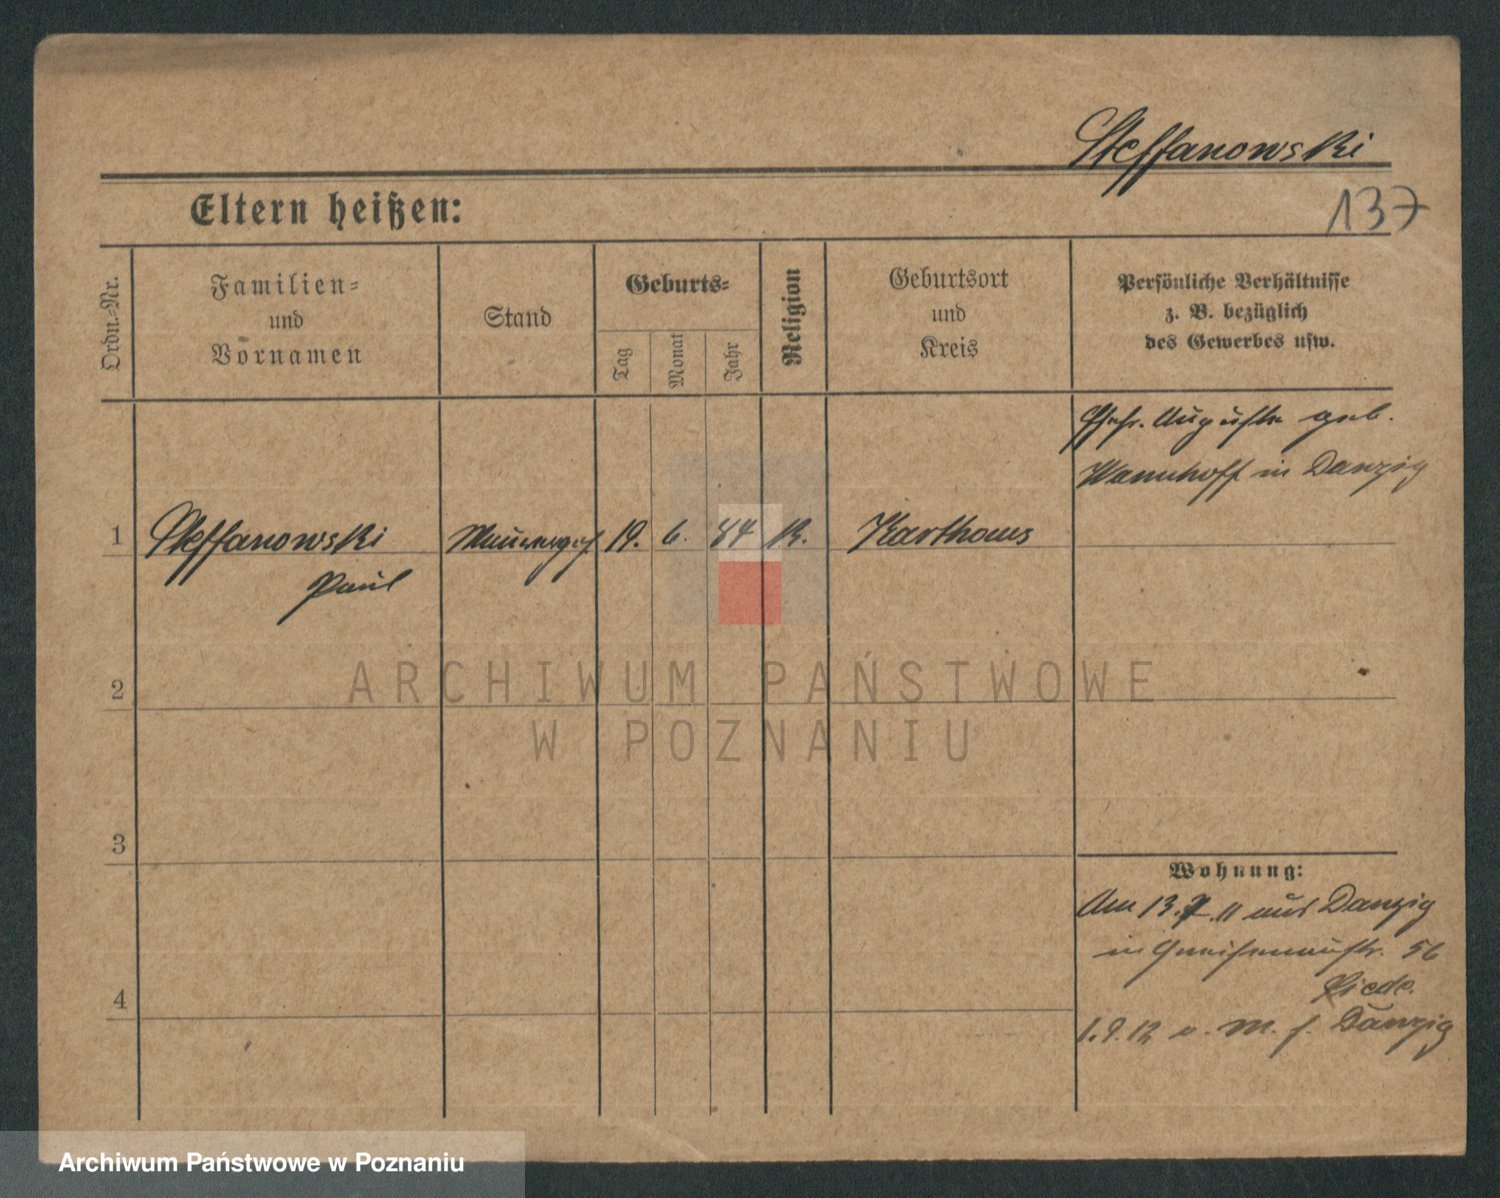 Steffanowski
137
Eltern heißen:
Ordn.-Nr.
Familien-
und
Vornamen
Stand
Geburts-
Tag
Monat
Jahr
Religion
Geburtsort
und
Kreis
Persönliche Verhältnisse
z. B. bezüglich
des Gewerbes usw.
Ehefr. Auguste geb.
Wannhoff in Danzig
1 Steffanowski Maurerges 19. 6. 44 K. Karthaus
Paul
2
3
4
Wohnung:
Am 13.7.11 aus Danzig
in Gneisenaustr. 56
1.9.12 v. M. f. Danzig
ARCHIWUM PAŃSTWOWE
W POZNANIU
Archiwum Państwowe w Poznaniu